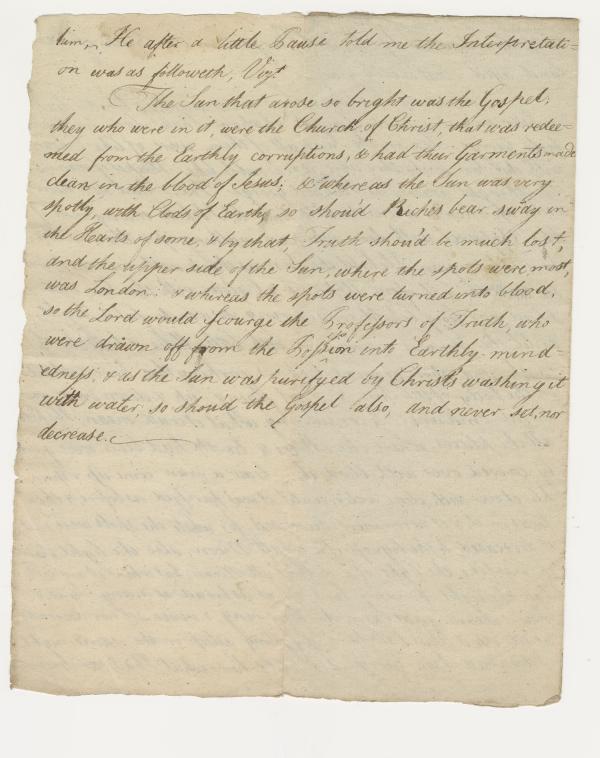 him, He after a little Pause told me the Interpretati=
on was as followeth, Vizt
The Sun that arose so bright was the Gospel;
they who were in it, were the Church of Christ, that was redee=
med from the Earthly corruptions, & had their Garments made
clean in the blood of Jesus; & whereas the Sun was very
spotty, with Clods of Earth, so shou'd Riches bear sway in
the Hearts of some, & by that, Truth shou'd be much lost,
and the upper side of the Sun, where the spots were most,
was London: & whereas the spots were turned into blood,
so the Lord would Scourge the Professors of Truth, who
were drawn off from the Possession into Earthly-mind=
edness, & as the Sun was purifyed by Christs washing it
with water, so shou'd the Gospel also, and never set, nor
decrease.